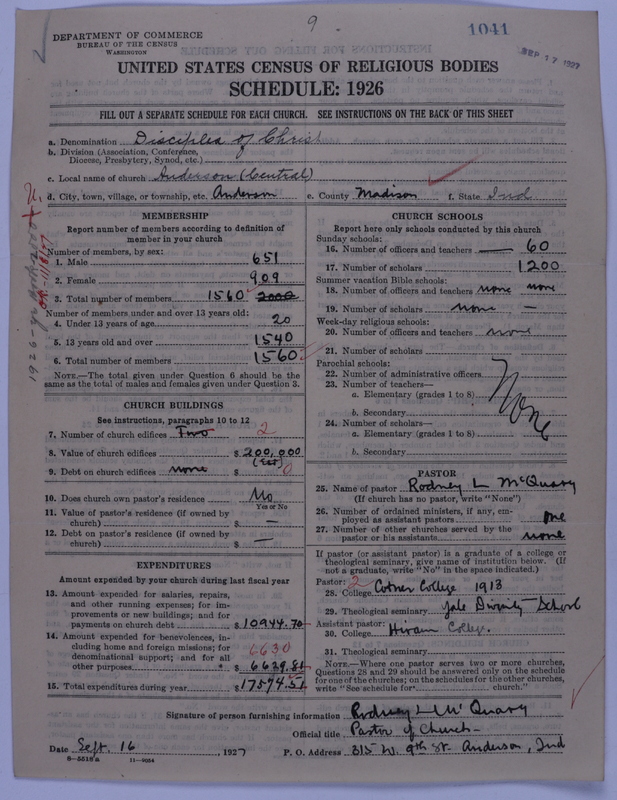 9
1041
SEP 17 1927
DEPARTMENT OF COMMERCE
BUREAU OF THE CENSUS
WASHINGTON
UNITED STATES CENSUS OF RELIGIOUS BODIES
SCHEDULE: 1926
FILL OUT A SEPARATE SCHEDULE FOR EACH CHURCH. SEE INSTRUCTIONS ON THE BACK OF THIS SHEET
a. Denomination Disciples of Christ
b. Division (Association, Conference, Diocese, Presbytery, Synod, etc.)
c. Local name of church Anderson (Central)
d. City, town, village, or township, etc. Anderson e. County Madison f. State Ind
MEMBERSHIP
Report number of members according to definition of
member in your church
Number of members, by sex:
1. Male 651
2. Female 909
3. Total number of members 1560 2000
Number of members under and over 13 years old:
4. Under 13 years of age 20
5. 13 years old and over 1540
6. Total number of members 1560
NOTE.—The total given under Question 6 should be the
same as the total of males and females given under Question 3.
CHURCH BUILDINGS
See instructions, paragraphs 10 to 12
7. Number of church edifices Two 2
8. Value of church edifices $200,000
(Est)
9. Debt on church edifices none $ 0
10. Does church own pastor's residence No
Yes or No
11. Value of pastor's residence (if owned by
church) $ —
12. Debt on pastor's residence (if owned by
church) $ —
EXPENDITURES
Amount expended by your church during last fiscal year
13. Amount expended for salaries, repairs,
and other running expenses; for im-
provements or new buildings; and for
payments on church debt $10944.70
14. Amount expended for benevolences, in-
cluding home and foreign missions; for 6630
denominational support; and for all
other purposes $ 6629.81
15. Total expenditures during year $17574.51
CHURCH SCHOOLS
Report here only schools conducted by this church
Sunday schools:
16. Number of officers and teachers 60
17. Number of scholars 1200
Summer vacation Bible schools:
18. Number of officers and teachers none none
19. Number of scholars none —
Week-day religious schools:
20. Number of officers and teachers none
21. Number of scholars
Parochial schools:
22. Number of administrative officers
23. Number of teachers—
a. Elementary (grades 1 to 8) None
b. Secondary
24. Number of scholars—
a. Elementary (grades 1 to 8)
b. Secondary
PASTOR
25. Name of pastor Rodney L McQuary
(If church has no pastor, write "None")
26. Number of ordained ministers, if any, em-
ployed as assistant pastors one
27. Number of other churches served by the
pastor or his assistants none
If pastor (or assistant pastor) is a graduate of a college or
theological seminary, give name of institution below. (If
not a graduate, write "No" in the space indicated.)
Pastor: 2
28. College Cotner College 1913
29. Theological seminary Yale Divinity School
Assistant pastor:
30. College Hiram College.
31. Theological seminary
NOTE.—Where one pastor serves two or more churches,
Questions 28 and 29 should be answered only on the schedule
for one of the churches; on the schedules for the other churches,
write "See schedule for church."
Signature of person furnishing information Rodney L McQuary
Official title Pastor of Church
Date Sept. 16 1927 P. O. Address 315 W. 9th St. Anderson, Ind
8—5518 a 11—9034